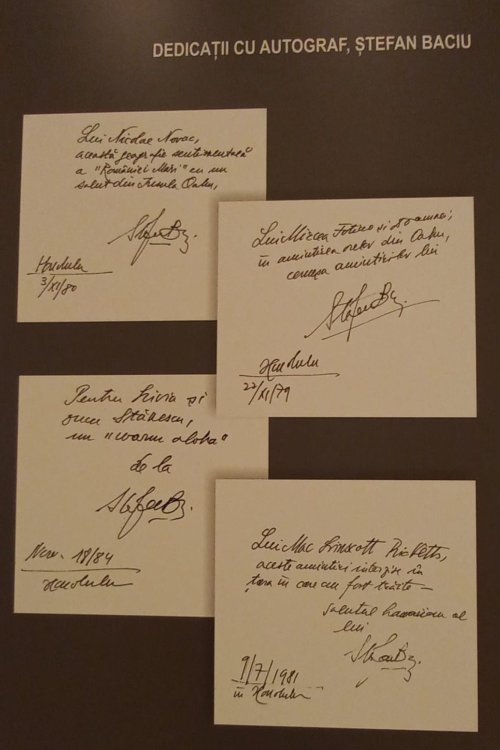 DEDICAȚII CU AUTOGRAF, ȘTEFAN BACIU
Lui Nicolae Novac,
această geografie sentimentală
a "României Mari" cu un
salut din Insula Oahu,
Honolulu
3/XI/80
Lui Mircea Fotino și doamnei,
în amintirea orelor din Oahu,
amintirilor lui
Honolulu
22/XI/79
Pentru Livia și
Stănescu,
un "warm aloha"
de la
Nov. 18/84
Honolulu
Lui Mac Linscott Ricketts,
aceste amintiri interzise în
țara în care am fost
salutul hawaiian al
lui
9/7/1981
în Honolulu